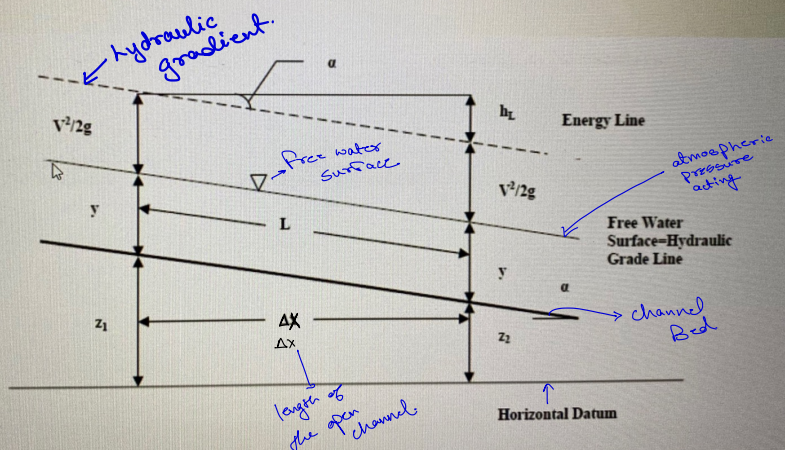 hydraulic
gradient.
α
h_L
Energy Line
V²/2g
Free water
surface
atmospheric
pressure
acting
V²/2g
y
L
Free Water
Surface=Hydraulic
Grade Line
y
α
z₁
ΔX
Δx
z₂
channel
Bed
length of
the open
channel.
Horizontal Datum